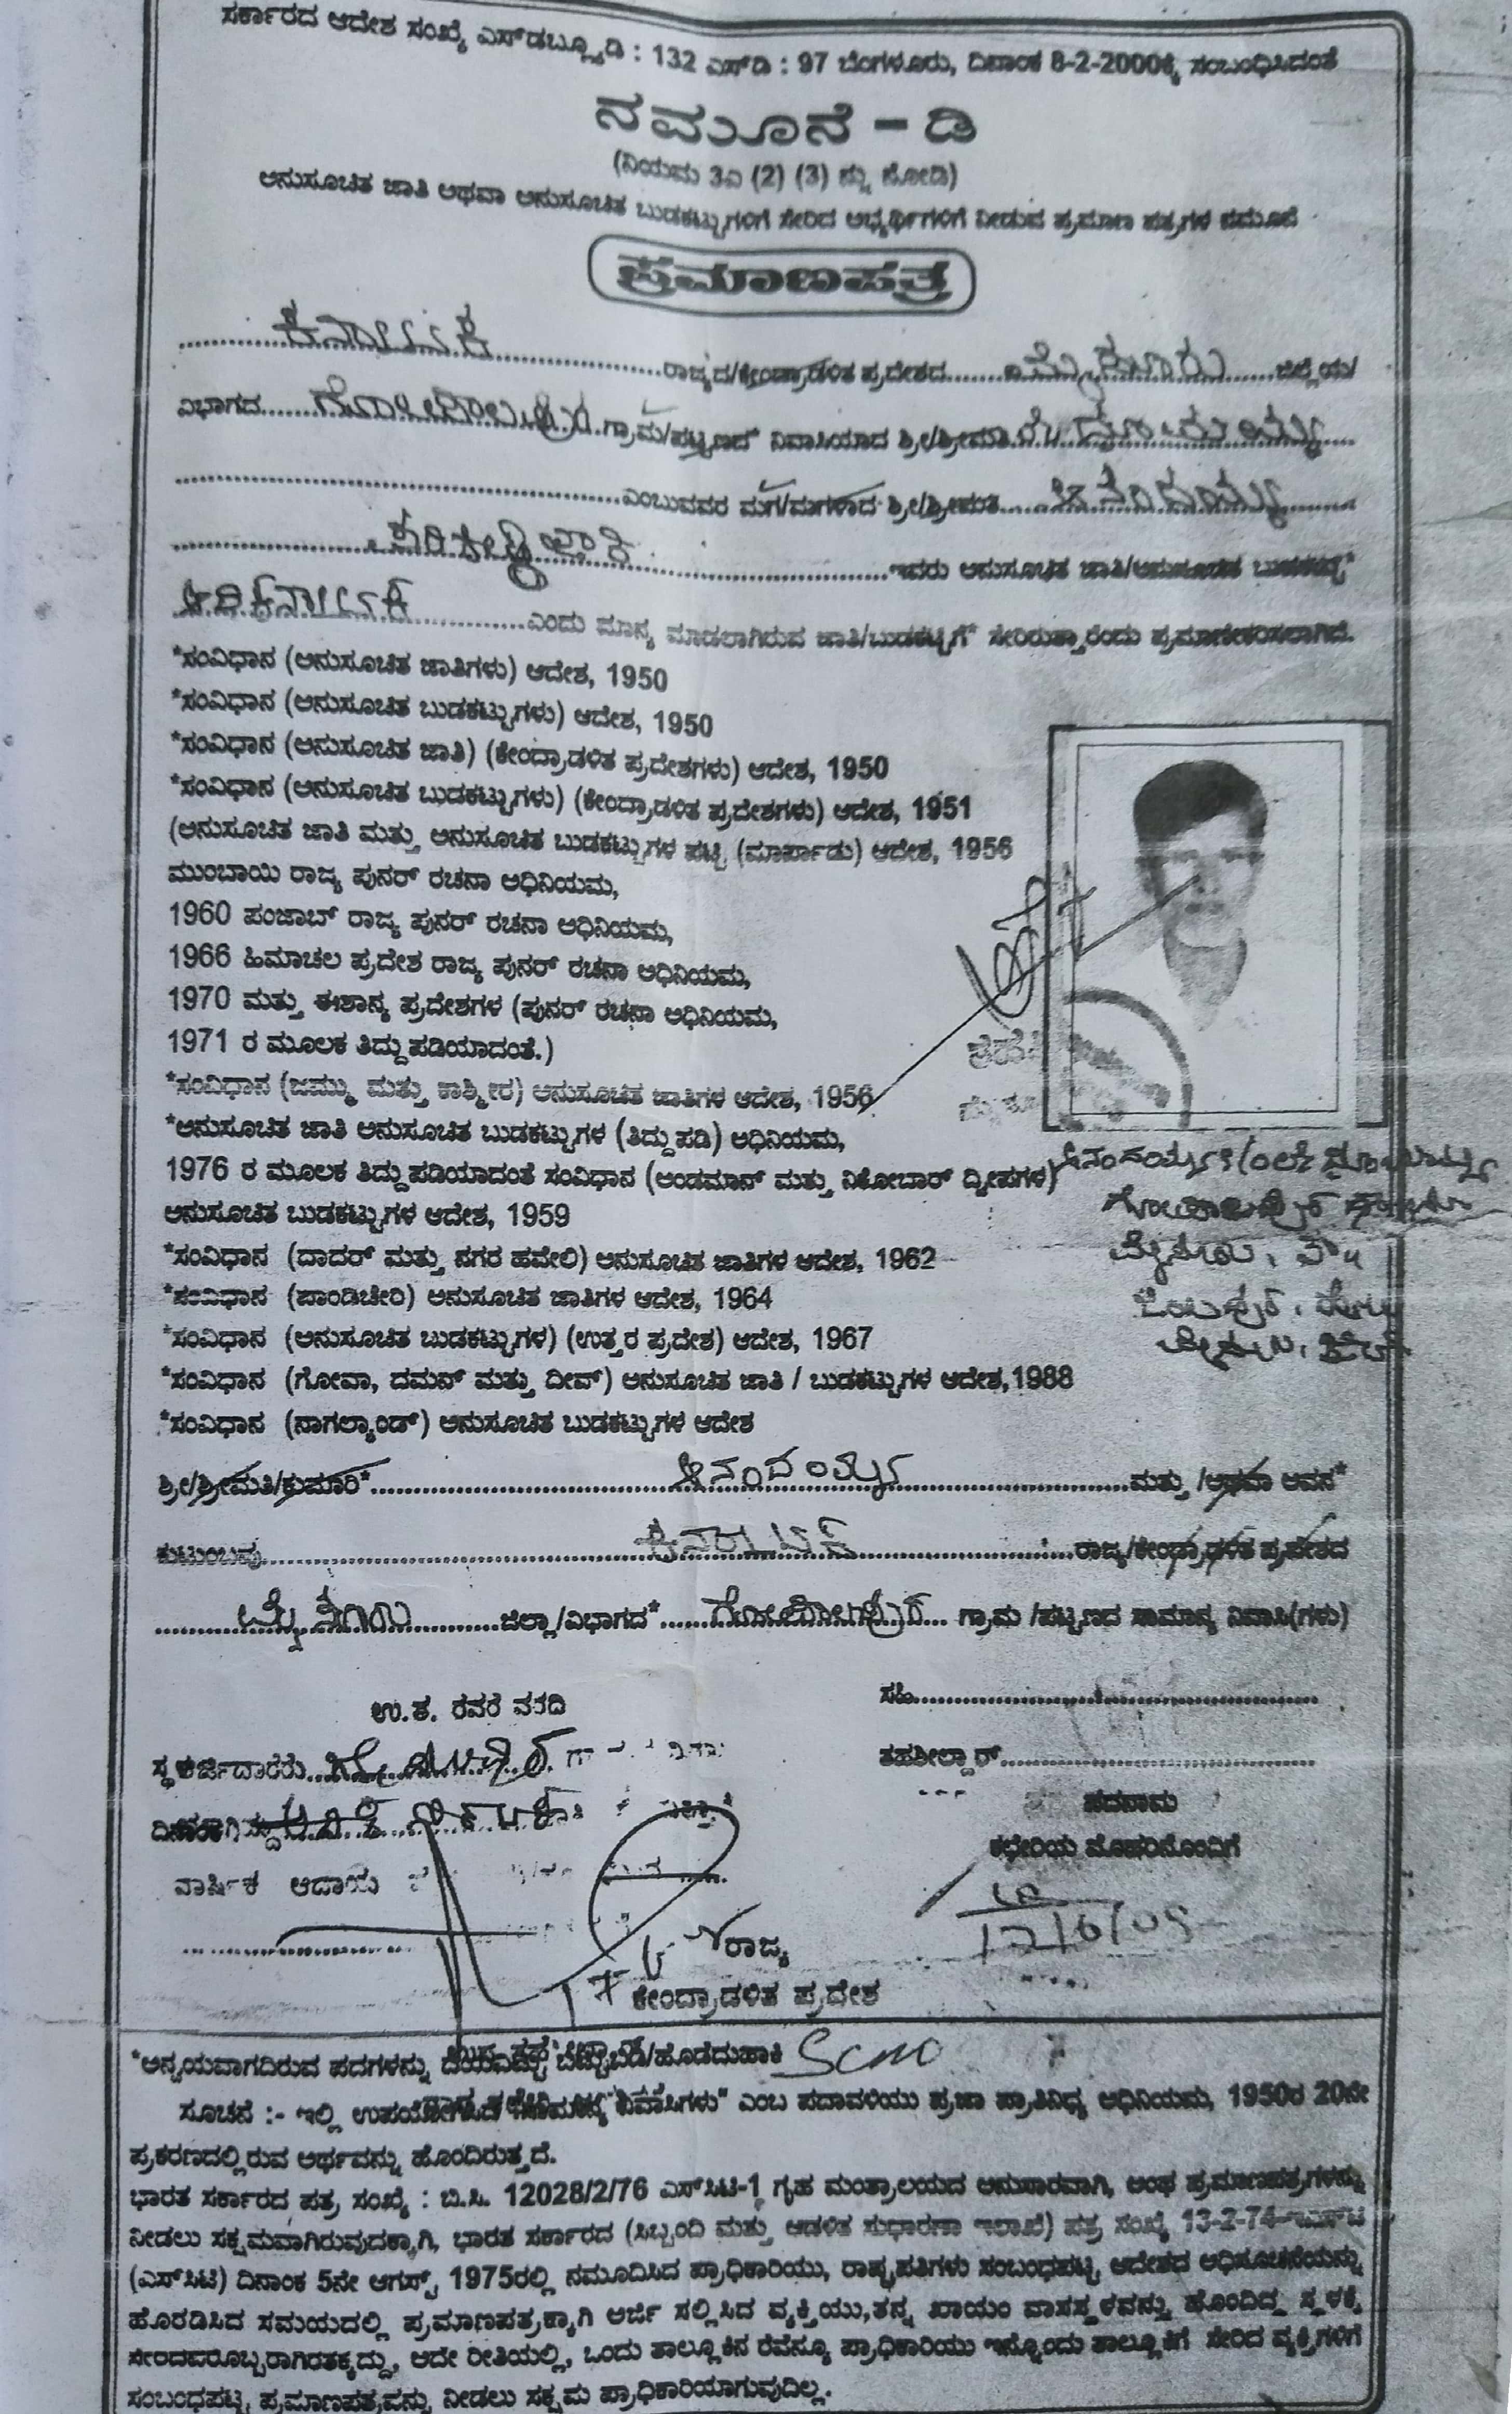 ಸರ್ಕಾರದ ಆದೇಶ ಸಂಖ್ಯೆ ಎಸ್‌ಡಬ್ಲ್ಯೂಡಿ : 132 ಎಸ್‌ಡಿ : 97 ಬೆಂಗಳೂರು, ದಿನಾಂಕ 8-2-2000ಕ್ಕೆ ಸಂಬಂಧಿಸಿದಂತೆ
ನಮೂನೆ - ಡಿ
(ನಿಯಮ 3ಎ (2) (3) ನ್ನು ನೋಡಿ)
ಅನುಸೂಚಿತ ಜಾತಿ ಅಥವಾ ಅನುಸೂಚಿತ ಬುಡಕಟ್ಟುಗಳಿಗೆ ಸೇರಿದ ಅಭ್ಯರ್ಥಿಗಳಿಗೆ ನೀಡುವ ಪ್ರಮಾಣ ಪತ್ರಗಳ ನಮೂನೆ
ಪ್ರಮಾಣಪತ್ರ
ಕರ್ನಾಟಕ ರಾಜ್ಯದ/ಕೇಂದ್ರಾಡಳಿತ ಪ್ರದೇಶದ ಮೈಸೂರು ಜಿಲ್ಲೆಯ/
ವಿಭಾಗದ ಗೋಪಾಲಪುರ ಗ್ರಾಮ/ಪಟ್ಟಣದ* ನಿವಾಸಿಯಾದ ಶ್ರೀ/ಶ್ರೀಮತಿ
ಎಂಬುವವರ ಮಗ/ಮಗಳಾದ ಶ್ರೀ/ಶ್ರೀಮತಿ ಆನಂದಯ್ಯ
ಇವರು ಅನುಸೂಚಿತ ಜಾತಿ/ಅನುಸೂಚಿತ ಬುಡಕಟ್ಟು*
ಆದಿಕರ್ನಾಟಕ ಎಂದು ಮಾನ್ಯ ಮಾಡಲಾಗಿರುವ ಜಾತಿ/ಬುಡಕಟ್ಟಿಗೆ* ಸೇರಿರುತ್ತಾರೆಂದು ಪ್ರಮಾಣೀಕರಿಸಲಾಗಿದೆ.
*ಸಂವಿಧಾನ (ಅನುಸೂಚಿತ ಜಾತಿಗಳು) ಆದೇಶ, 1950
*ಸಂವಿಧಾನ (ಅನುಸೂಚಿತ ಬುಡಕಟ್ಟುಗಳು) ಆದೇಶ, 1950
*ಸಂವಿಧಾನ (ಅನುಸೂಚಿತ ಜಾತಿ) (ಕೇಂದ್ರಾಡಳಿತ ಪ್ರದೇಶಗಳು) ಆದೇಶ, 1950
*ಸಂವಿಧಾನ (ಅನುಸೂಚಿತ ಬುಡಕಟ್ಟುಗಳು) (ಕೇಂದ್ರಾಡಳಿತ ಪ್ರದೇಶಗಳು) ಆದೇಶ, 1951
(ಅನುಸೂಚಿತ ಜಾತಿ ಮತ್ತು ಅನುಸೂಚಿತ ಬುಡಕಟ್ಟುಗಳ ಪಟ್ಟಿ (ಮಾರ್ಪಾಡು) ಆದೇಶ, 1956
ಮುಂಬಾಯಿ ರಾಜ್ಯ ಪುನರ್ ರಚನಾ ಅಧಿನಿಯಮ,
1960 ಪಂಜಾಬ್ ರಾಜ್ಯ ಪುನರ್ ರಚನಾ ಅಧಿನಿಯಮ,
1966 ಹಿಮಾಚಲ ಪ್ರದೇಶ ರಾಜ್ಯ ಪುನರ್ ರಚನಾ ಅಧಿನಿಯಮ,
1970 ಮತ್ತು ಈಶಾನ್ಯ ಪ್ರದೇಶಗಳ (ಪುನರ್ ರಚನಾ ಅಧಿನಿಯಮ,
1971 ರ ಮೂಲಕ ತಿದ್ದುಪಡಿಯಾದಂತೆ.)
*ಸಂವಿಧಾನ (ಜಮ್ಮು ಮತ್ತು ಕಾಶ್ಮೀರ) ಅನುಸೂಚಿತ ಜಾತಿಗಳ ಆದೇಶ, 1956
*ಅನುಸೂಚಿತ ಜಾತಿ ಅನುಸೂಚಿತ ಬುಡಕಟ್ಟುಗಳ (ತಿದ್ದುಪಡಿ) ಅಧಿನಿಯಮ,
1976 ರ ಮೂಲಕ ತಿದ್ದುಪಡಿಯಾದಂತೆ ಸಂವಿಧಾನ (ಅಂಡಮಾನ್ ಮತ್ತು ನಿಕೋಬಾರ್ ದ್ವೀಪಗಳ)
ಅನುಸೂಚಿತ ಬುಡಕಟ್ಟುಗಳ ಆದೇಶ, 1959
*ಸಂವಿಧಾನ (ದಾದರ್ ಮತ್ತು ನಗರ ಹವೇಲಿ) ಅನುಸೂಚಿತ ಜಾತಿಗಳ ಆದೇಶ, 1962
*ಸಂವಿಧಾನ (ಪಾಂಡಿಚೇರಿ) ಅನುಸೂಚಿತ ಜಾತಿಗಳ ಆದೇಶ, 1964
*ಸಂವಿಧಾನ (ಅನುಸೂಚಿತ ಬುಡಕಟ್ಟುಗಳ) (ಉತ್ತರ ಪ್ರದೇಶ) ಆದೇಶ, 1967
*ಸಂವಿಧಾನ (ಗೋವಾ, ದಮನ್ ಮತ್ತು ದೀವ್) ಅನುಸೂಚಿತ ಜಾತಿ / ಬುಡಕಟ್ಟುಗಳ ಆದೇಶ,1988
*ಸಂವಿಧಾನ (ನಾಗಲ್ಯಾಂಡ್) ಅನುಸೂಚಿತ ಬುಡಕಟ್ಟುಗಳ ಆದೇಶ
ಶ್ರೀ/ಶ್ರೀಮತಿ/ಕುಮಾರಿ* ಆನಂದಯ್ಯ ಮತ್ತು /ಅಥವಾ ಅವನ*
ಕುಟುಂಬವು ರಾಜ್ಯ/ಕೇಂದ್ರಾಡಳಿತ ಪ್ರದೇಶದ
ಮೈಸೂರು ಜಿಲ್ಲಾ/ವಿಭಾಗದ* ಗೋಪಾಲಪುರ ಗ್ರಾಮ /ಪಟ್ಟಣದ ಸಾಮಾನ್ಯ ನಿವಾಸಿ(ಗಳು)
ಉ.ತ. ರವರ ವರದಿ
ಸಹಿ
ಸ್ಥಳ
ತಹಶೀಲ್ದಾರ್
ಪದನಾಮ
ದಿನಾಂಕ
ಕಛೇರಿಯ ಮೊಹರಿನೊಂದಿಗೆ
ವಾರ್ಷಿಕ ಆದಾಯ
ರಾಜ್ಯ
ಕೇಂದ್ರಾಡಳಿತ ಪ್ರದೇಶ
*ಅನ್ವಯವಾಗದಿರುವ ಪದಗಳನ್ನು ದಯವಿಟ್ಟು ಬಿಟ್ಟುಬಿಡಿ/ಹೊಡೆದುಹಾಕಿ
ಸೂಚನೆ :- ಇಲ್ಲಿ ಉಪಯೋಗಿಸಿದ "ಸಾಮಾನ್ಯ ನಿವಾಸಿಗಳು" ಎಂಬ ಪದಾವಳಿಯು ಪ್ರಜಾ ಪ್ರಾತಿನಿಧ್ಯ ಅಧಿನಿಯಮ, 1950ರ 20ನೇ
ಪ್ರಕರಣದಲ್ಲಿರುವ ಅರ್ಥವನ್ನು ಹೊಂದಿರುತ್ತದೆ.
ಭಾರತ ಸರ್ಕಾರದ ಪತ್ರ ಸಂಖ್ಯೆ : ಬಿ.ಸಿ. 12028/2/76 ಎಸ್‌ಸಿಟಿ-1 ಗೃಹ ಮಂತ್ರಾಲಯದ ಅನುಸಾರವಾಗಿ, ಅಂಥ ಪ್ರಮಾಣಪತ್ರಗಳನ್ನು
ನೀಡಲು ಸಕ್ಷಮವಾಗಿರುವುದಕ್ಕಾಗಿ, ಭಾರತ ಸರ್ಕಾರದ (ಸಿಬ್ಬಂದಿ ಮತ್ತು ಆಡಳಿತ ಸುಧಾರಣಾ ಇಲಾಖೆ) ಪತ್ರ ಸಂಖ್ಯೆ 13-2-74-
(ಎಸ್‌ಸಿಟಿ) ದಿನಾಂಕ 5ನೇ ಆಗಸ್ಟ್ 1975ರಲ್ಲಿ ನಮೂದಿಸಿದ ಪ್ರಾಧಿಕಾರಿಯು, ರಾಷ್ಟ್ರಪತಿಗಳು ಸಂಬಂಧಪಟ್ಟ ಆದೇಶದ ಅಧಿಸೂಚನೆಯನ್ನು
ಹೊರಡಿಸಿದ ಸಮಯದಲ್ಲಿ ಪ್ರಮಾಣಪತ್ರಕ್ಕಾಗಿ ಅರ್ಜಿ ಸಲ್ಲಿಸಿದ ವ್ಯಕ್ತಿಯು,ತನ್ನ ಖಾಯಂ ವಾಸಸ್ಥಳವನ್ನು ಹೊಂದಿದ್ದ ಸ್ಥಳಕ್ಕೆ
ಸೇರಿದವರೊಬ್ಬರಾಗಿರತಕ್ಕದ್ದು, ಅದೇ ರೀತಿಯಲ್ಲಿ, ಒಂದು ತಾಲ್ಲೂಕಿನ ರೆವೆನ್ಯೂ ಪ್ರಾಧಿಕಾರಿಯು ಇನ್ನೊಂದು ತಾಲ್ಲೂಕಿಗೆ ಸೇರಿದ ವ್ಯಕ್ತಿಗಳಿಗೆ
ಸಂಬಂಧಪಟ್ಟ ಪ್ರಮಾಣಪತ್ರವನ್ನು ನೀಡಲು ಸಕ್ಷಮ ಪ್ರಾಧಿಕಾರಿಯಾಗುವುದಿಲ್ಲ.